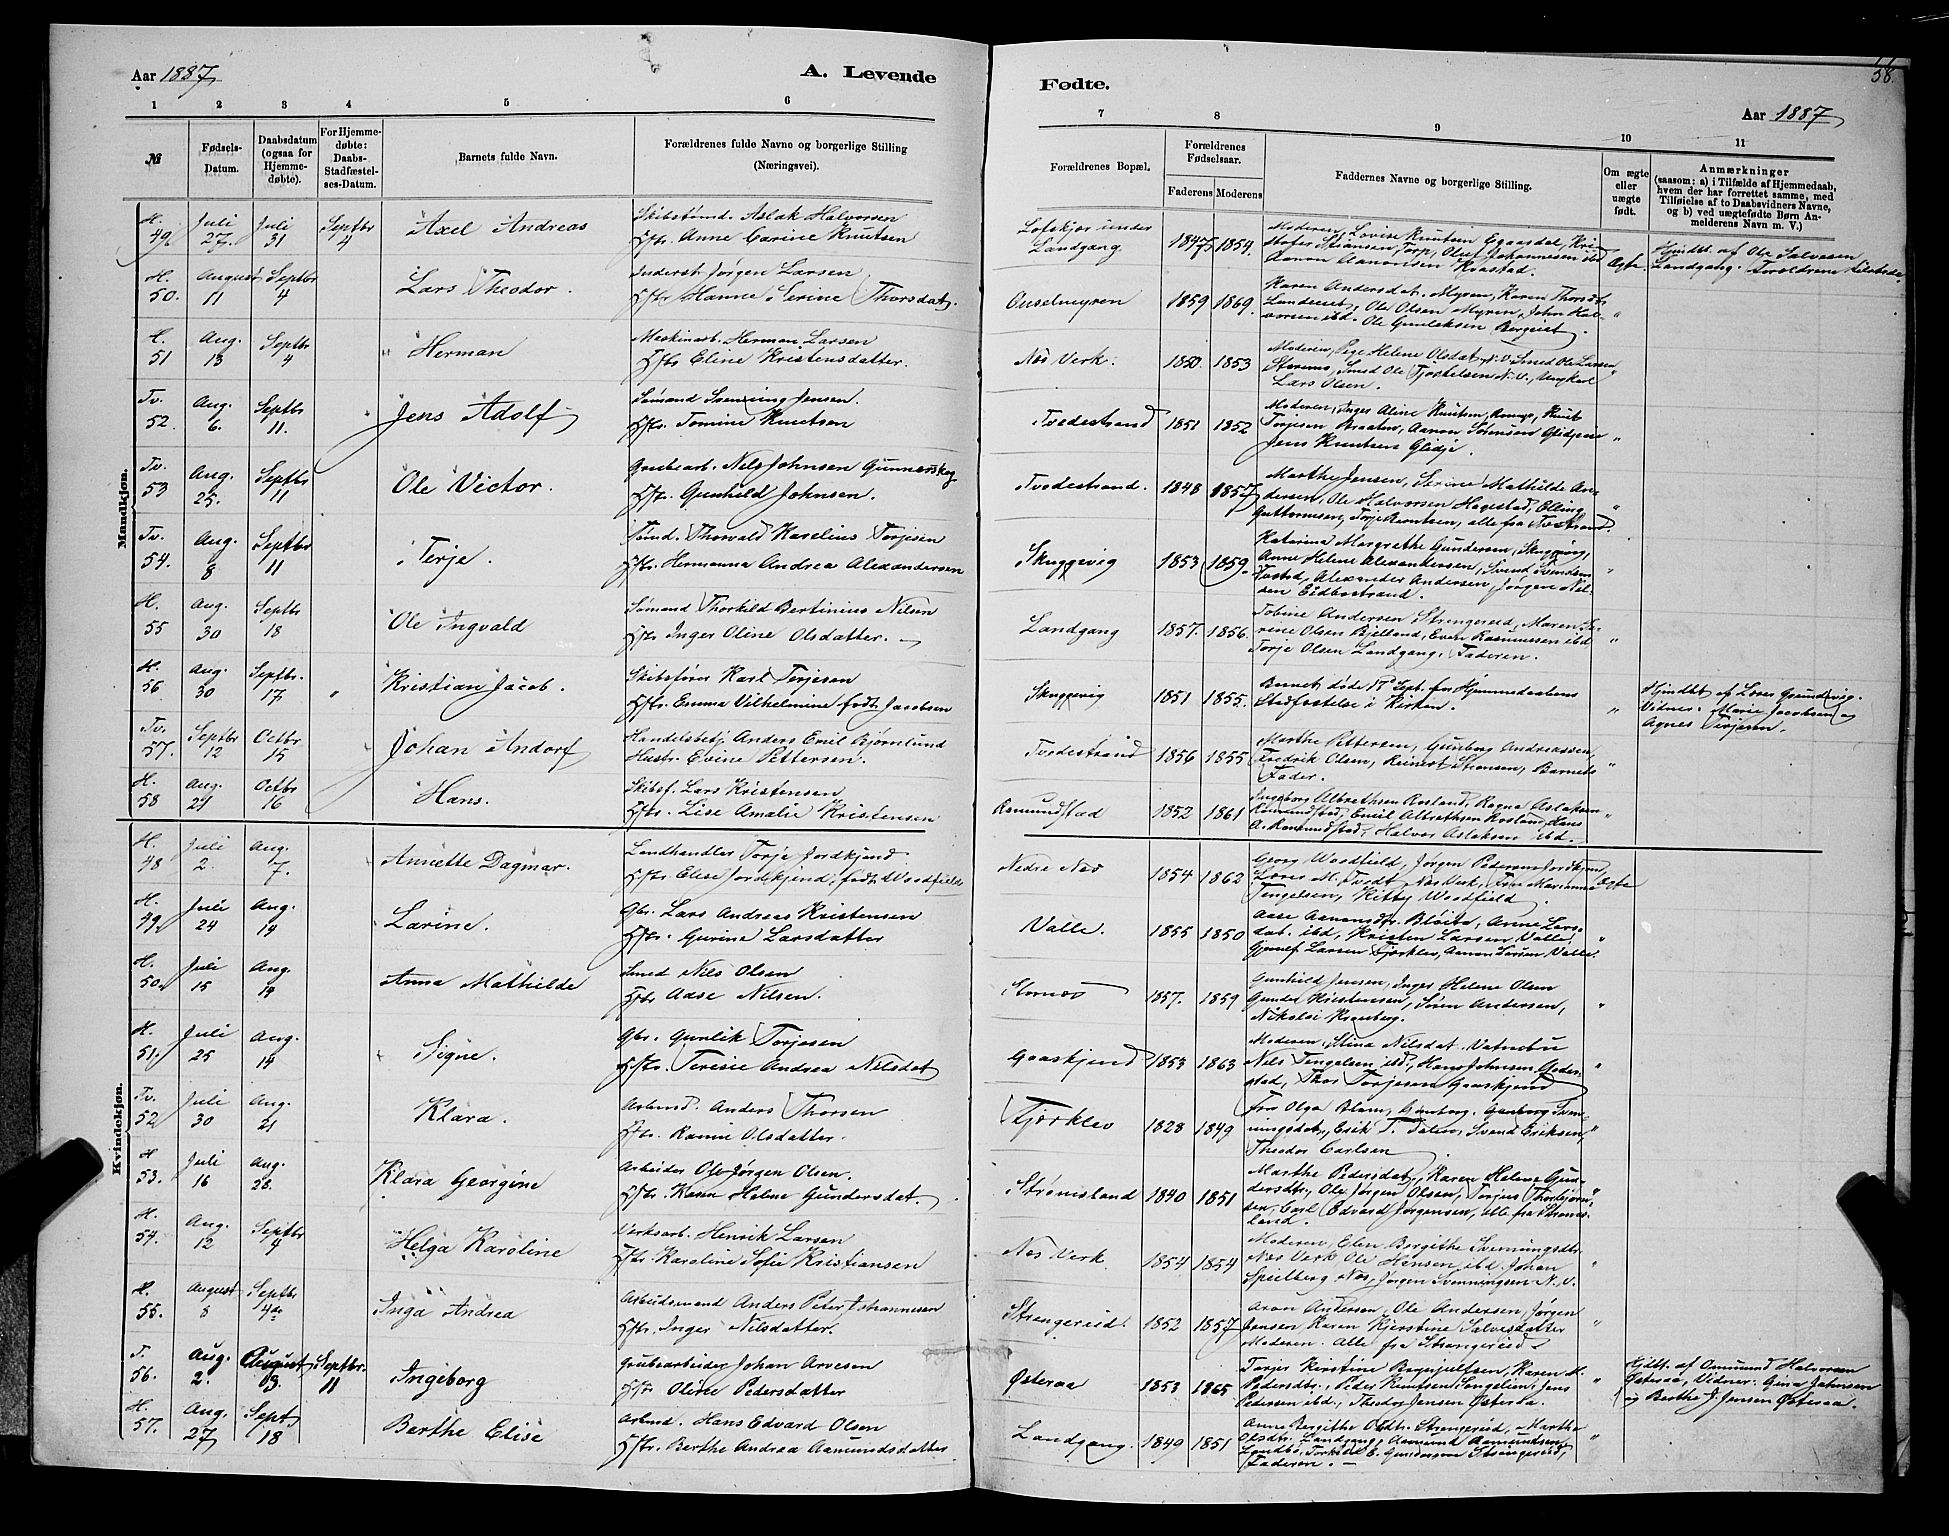 Aar 1887
A. Levende
Fødte.
58.
Aar 1887
1 2 3 4 5 6 7 8 9 10 11
№
Fødsels-Datum.
Daabsdatum (ogsaa for Hjemmedøbte).
For Hjemmedøbte: Daabs-Stadfæstelses-Datum.
Barnets fulde Navn.
Forældrenes fulde Navne og borgerlige Stilling (Næringsvei).
Forældrenes Bopæl.
Forældrenes Fødselsaar.
Faderens Moderens
Faddernes Navne og borgerlige Stilling.
Om ægte eller uægte født.
Anmærkninger
(saasom: a) i Tilfælde af Hjemmedaab, hvem der har forrettet samme, med Tilføielse af to Daabsvidners Navne, og b) ved uægtefødte Børn Anmelderens Navn m. V.)
Mandkjøn.
H. 49. Juli 27. Juli 31 Septbr 4 Axel Andreas
Aslak Halvorsen
Hstr. Anne Carine Knutsen
Landgang 1847 1854.
Moderen, Lovise Knutsen
Hjmdbt. af Ole Salvesen
Landgang.
Ægte
H. 50. August 11 Septbr 4 Lars Theodor.
Inderst Jørgen Larsen
Hstr. Hanne Serine Thorsdat.
1859 1869.
Karen Andersdat. Myren, Karen Thorsdt.
Ole Olsen Myren, John Halvorsen ibd. Ole Gunleksen
H. 51 Aug. 13 Septbr 4 Herman
Maskinarb. Herman Larsen
Hstr. Eline Kristensdatter.
Nes Verk. 1850. 1853
Moderen, Pige Helene Olsdat, N.V. Smed Ole Larsen
Smed Ole Tjostelsen N.V., Ungkarl
Lars Olsen.
Tv. 52. Aug. 6. Septbr 11. Jens Adolf
Sømand Svenning Jensen.
Hstr. Tomine Knutsen
Tvedestrand 1851 1852
Moderen, Inger Aline Knutsen, Knut
Torjesen Braaten, Aanon Sørensen
Jens Knutsen Glidje.
Tv. 53 Aug. 25. Septbr 11 Ole Victor.
Grubearb. Nils Johnsen Gunnerskog
Hstr. Gunhild Johnsen.
Tvedestrand. 1848 1857
Marthe Jensen, Serine Mathilde Andersen, Ole Halvorsen Hagestad, Elling
Guttormsen, Terje Berntsen, alle fra Tvdstrand.
Tv. 54. Aug. 8 Septbr 11 Terje.
Tømd. Thorvald Karelius Torjesen
Hstr. Hermanna Andrea Alexandersen
Skuggevig 1853 1859.
Katarina Margrethe Gundersen, Skuggevig,
Anne Helene Alexandersen, Svend Svendsen
Alexander Andersen, Jørgen Nilsen Eidbostrand.
H. 55 Aug. 30 Septbr 18 Ole Ingvald
Sømand Thorkild Bertinius Nilsen
Hstr. Inger Oline Olsdatter.
Landgang 1857. 1856.
Tobine Andersen Strengereid, Maren Serine Olsen Bjelland, Even Rasmussen ibd
Terje Olsen Landgang. Faderen.
H. 56 Aug. 30 Septbr. 17 Kristian Jacob.
Skibsfører Karl Terjesen
Hstr. Emma Vilhelmine født Jacobsen
Skuggevig 1851 1855.
Barnet døde 17 Sept. før Hjemmedaabens
Stadfæstelse i Kirken.
Hjmdbt. af Grundevig.
Vidner: Marie Jacobsen og
Agnes Terjesen.
Tv. 57. Septbr 12 Octbr 15 Johan Andorf
Anders Emil Bjørnlund
Hustr. Evine Pettersen.
Tvedestrand 1856 1855
Marthe Pettersen, Gunborg Andreassen,
Fredrik Olsen, Reinert Stiansen, Barnets
Fader.
H. 58 Aug. 21 Octbr 16 Hans.
Skibsf. Lars Kristensen
Hstr. Lise Amalie Kristensen
Ramundstad 1852 1861
Ingeborg Albrethsen Rosland, Ragna Aslaksen
Ramundstad, Emil Albrethsen Rosland, Hans
A. Ramundstad, Halvor Aslaksen ibd.
Kvindekjøn.
H. 48 Juli 2. Aug. 7. Annette Dagmar.
Landhandler Terje Jordkjend
Hstr. Elise Jordkjend, født Woodfield
Nedre Nes 1854 1862
Georg Woodfield, Jørgen Pedersen Jordkjend
M. Tvedt, Nes Verk, Frk Marianne
Tengelsen, Kitty Woodfield.
Ægte
H. 49. Juli 24 Aug. 14 Larine.
Gbr. Lars Andreas Kristensen
Hstr. Gurine Larsdatter
Valle. 1855 1850
Aase Aanonsdtr. Anne Larsdat. ibd, Kristen Larsen Valle,
Gjeruf Larsen Fjerklev, Aanon Larsen Valle.
H. 50. Juli 15 Aug. 14 Anna Mathilde
Smed Nils Olsen
Hstr Aase Nilsen.
Stornes 1857. 1859
Gunhild Jensen, Inger Helene Olsen
Gunder Kristensen, Søren Andersen,
Nikolai Kranberg.
H. 51. Juli 25 Aug. 14 Signe.
Gbr. Gunlik Torjesen
Hstr. Teresie Andrea Nilsdat
Gaaskjend 1853 1863
Moderen, Stina Nilsdat. Vatnebu
Nils Tengelsen ibd, Hans Johnsen Goderstad, Thor Torjesen Gaaskjend
Tv. 52 Juli 30 Aug. 21 Klara.
Arbmd. Anders Thorsen
Hstr. Ramie Olsdatter.
Fjerklev 1828 1849
Fru Olga Blom, Gunborg Svenningsdat, Erik T. Dalen, Svend Eriksen,
Theodor Carlsen
H. 53. Juli 16 Aug. 28. Klara Georgine
Arbeider Ole Jørgen Olsen.
Hstr. Karen Helene Gundersdat.
Strømsland 1840 1851
Marthe Pedersdat, Karen Helene Gundersdtr., Ole Jørgen Olsen, Torjus Thorbjørnsen, Carl Edvard Jørgensen, alle fra Strømsland.
H. 54. Aug. 12 Septbr 4 Helga Karoline
Verksarb. Henrik Larsen
Hstr Karoline Sofie Kristiansen
Nes Verk 1854 1854
Moderen, Elen Borgithe Svenningsdtr.
Nes Verk Ole Hansen ibd. Johan
Spielberg Nes, Jørgen Svenningsen N.V.
H. 55. August 8 Septbr 4de Inga Andrea
Arbeidsmand Anders Peter Johannesen
Hstr. Inger Nilsdatter.
Strengereid. 1852 1857
Aron Andersen, Ole Andersen, Jørgen
Jensen Karen Kjerstine Salvesdatter
Moderen. Alle fra Strengereid.
T. 56. Aug. 2. August 13. Septbr. 11 Ingeborg
Grubearbeider Johan Arvesen
Hstr Oline Pedersdatter
Østeraa 1853 1865.
Karen M.
Pedersdtr., Peder Knutsen Songelien, Jens
Pedersen ibd., Theodor Jensen Østeraa.
Hjdbt. af Omund Halvorsen
Østeraa, Vidner: Gina Johnsen
og Berthe J. Jensen Østeraa.
H. 57. Aug. 27 Sept 18 Berthe Elise
Arbmd. Hans Edvard Olsen
Hstr. Berthe Andrea Aamundsdatter
Landgang. 1849 1851
Anne Bergithe Strengereid, Marthe
Olsdtr. Landgang, Aamund Ramundsen
E. Gundersen Strengereid,
Faderen.